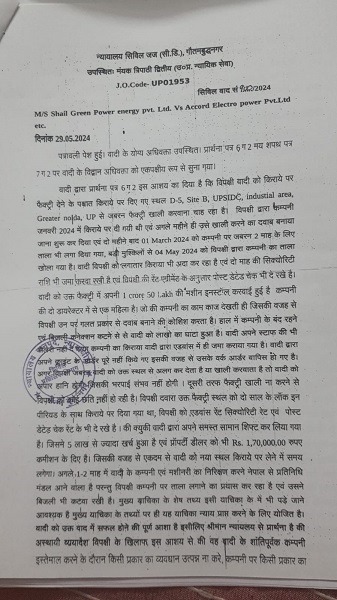 न्यायालय सिविल जज (सी.डि.), गौतमबुद्धनगर
उपस्थितः मंयक त्रिपाठी द्वितीय (उ०प्र. न्यायिक सेवा)
J.O.Code- UP01953
सिविल वाद सं
M/S Shail Green Power energy pvt. Ltd. Vs Accord Electro power Pvt.Ltd
etc.
दिनांक 29.05.2024
पत्रावली पेश हुई। वादी के योग्य अधिवक्ता उपस्थित। प्रार्थना पत्र 6ग2 मय शपथ पत्र
7ग2 पर वादी के विद्वान अधिवक्ता को एकपक्षीय रूप से सुना गया।
वादी द्वारा प्रार्थना पत्र 6ग2 इस आशय का दिया है कि विपक्षी वादी को किराये पर
फैक्ट्री देने के पश्चात किराये पर दिए गए स्थल D-5, Site B, UPSIDC, industial area,
Greater noida, UP से जबरन फैक्ट्री खाली करवाना चाह रहा है। विपक्षी द्वारा कम्पनी
जनवरी 2024 में किराये पर दी गयी थी एवं अगले महीने ही उसे खाली करने का दबाव बनाया
जाना शुरू कर दिया एवं दो महीने बाद 01 March 2024 को कम्पनी पर जबरन 2 माह के लिए
ताला भी लगा दिया गया, बड़ी मुश्किलों से 04 May 2024 को विपक्षी द्वारा कम्पनी का ताला
खोला गया है। वादी विपक्षी को लगातार किराया भी अदा कर रहा है एवं दो माह की सिक्योरिटी
राशि भी जमा करवा रखी है एवं विपक्षी की रेंट एग्रीमेंट के अनुसार पोस्ट डेटेड चेक भी दे रखे है।
वादी को उक्त फैक्ट्री में अपनी 1 crore 50 Lakh की मशीन इनस्टॉल करवाई हुई है कम्पनी
की दो डायरेक्टर में से एक महिला है। जो की कम्पनी का काम काज देखती ही जिसकी वजह से
विपक्षी उन पर गलत प्रकार से दबाव बनाने की कोशिश करता है। हाल में कम्पनी के बंद रहने
एवं बिजली कनेक्शन कटने से वादी को लाखो का घाटा हुआ है। वादी अपने स्टाफ की भी
नहीं परंतु कम्पनी का किराया वादी द्वारा एडवांस में ही जमा कराया गया है। वादी द्वारा
अपने क्लाइंट के आर्डर पूरे नहीं किये गए इसकी वजह से उसके वर्क आर्डर वापिस हो गए है।
अगर विपक्षी जबरन वादी को उक्त स्थल से अलग कर देता है या खाली करवाता है तो वादी को
अपार हानि होगी जिसकी भरपाई संभव नहीं होगी । दूसरी तरफ फैक्ट्री खाली ना करने से
विपक्षी को कोई क्षति नहीं हो रही है। विपक्षी दवारा उक्त फैक्ट्री स्थल को दो साल के लॉक इन
पीरियड के साथ किराये पर दिया गया था, विपक्षी को एडवांस रेंट सिक्योरिटी रेंट एवं पोस्ट
डेटेड चेक रेंट के भी दे रखे है । की क्युकी वादी द्वारा अपने समस्त सामान शिफ्ट कर लिया गया
है। जिसने 5 लाख से ज्यादा खर्च हुआ है एवं प्रॉपर्टी डीलर को भी Rs. 1,70,000,00 रुपए
कमीशन के दिए है। जिसकी वजह से एकदम से वादी को नया स्थल किराये पर लेने में समय
लगेगा। अगले -1-2 माह में वादी के कम्पनी एवं मशीनरी का निरिक्षण करने नेपाल से प्रतिनिधि
मंडल आने वाला है परन्तु विपक्षी कम्पनी पर ताला लगाने का प्रयास कर रहा है एवं उसने
बिजली भी कटवा रखी है। मुख्य याचिका के शेष तथ्य इसी याचिका के में भी पड़े जाने
आवश्यक है मुख्य याचिका के तथ्यों पर ही यह याचिका न्याय प्राप्त करने के लिए योजित है।
वादी को उक्त वाद में सफल होने की पूर्ण आशा है इसीलिए श्रीमान न्यायालय से प्रार्थना है की
अस्थायी व्यादेश विपक्षी के खिलाफ, इस आशय से की वह वादी के शांतिपूर्वक कम्पनी
इस्तेमाल करने के दौरान किसी प्रकार का व्यवधान उत्पन्न ना करे, कम्पनी पर किसी प्रकार का